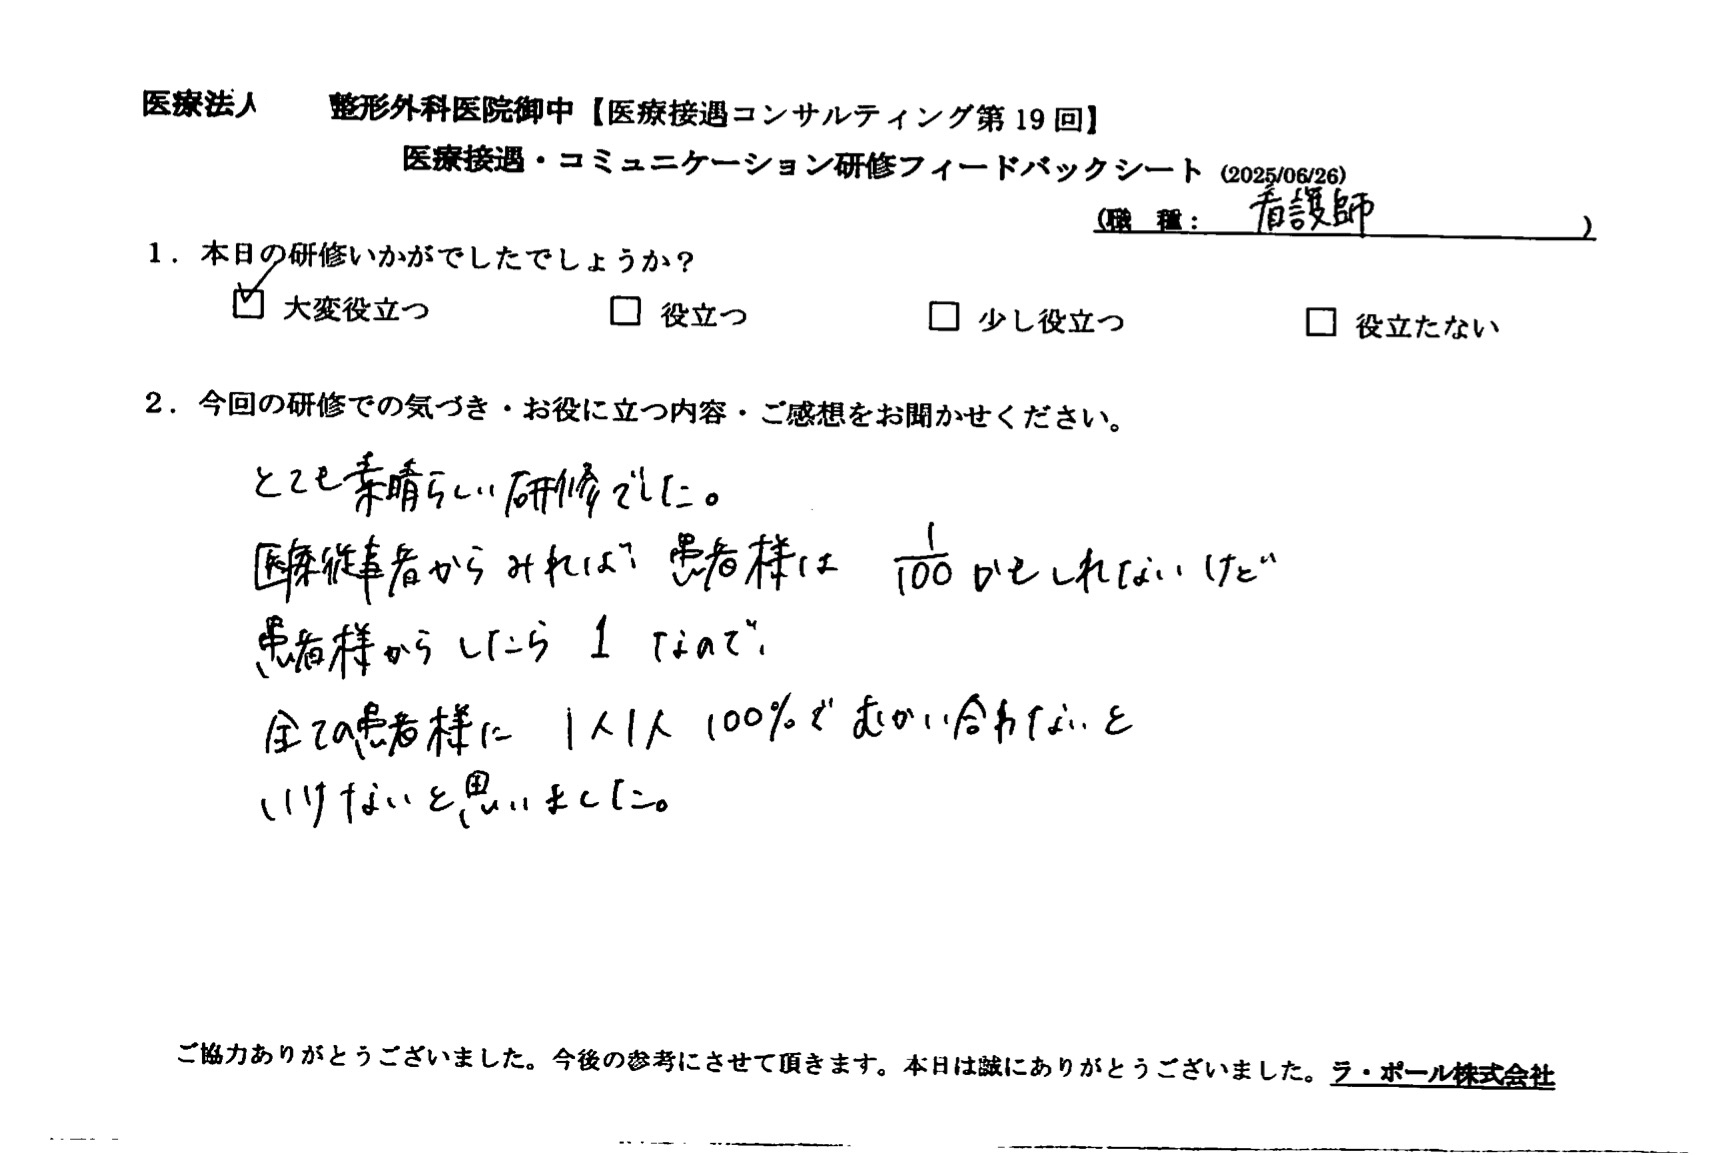 医療法人　　整形外科医院御中【医療接遇コンサルティング第19回】
医療接遇・コミュニケーション研修フィードバックシート (2025/06/26)
(職　種：　看護師　)
1．本日の研修いかがでしたでしょうか？
☑ 大変役立つ　□ 役立つ　□ 少し役立つ　□ 役立たない
2．今回の研修での気づき・お役に立つ内容・ご感想をお聞かせください。
とても素晴らしい研修でした。
医療従事者からみれば、患者様は 1/100 かもしれないけど
患者様からしたら 1 なので、
全ての患者様に 1人1人 100%で むかい合わないと
いけないと思いました。
ご協力ありがとうございました。今後の参考にさせて頂きます。本日は誠にありがとうございました。ラ・ポール株式会社